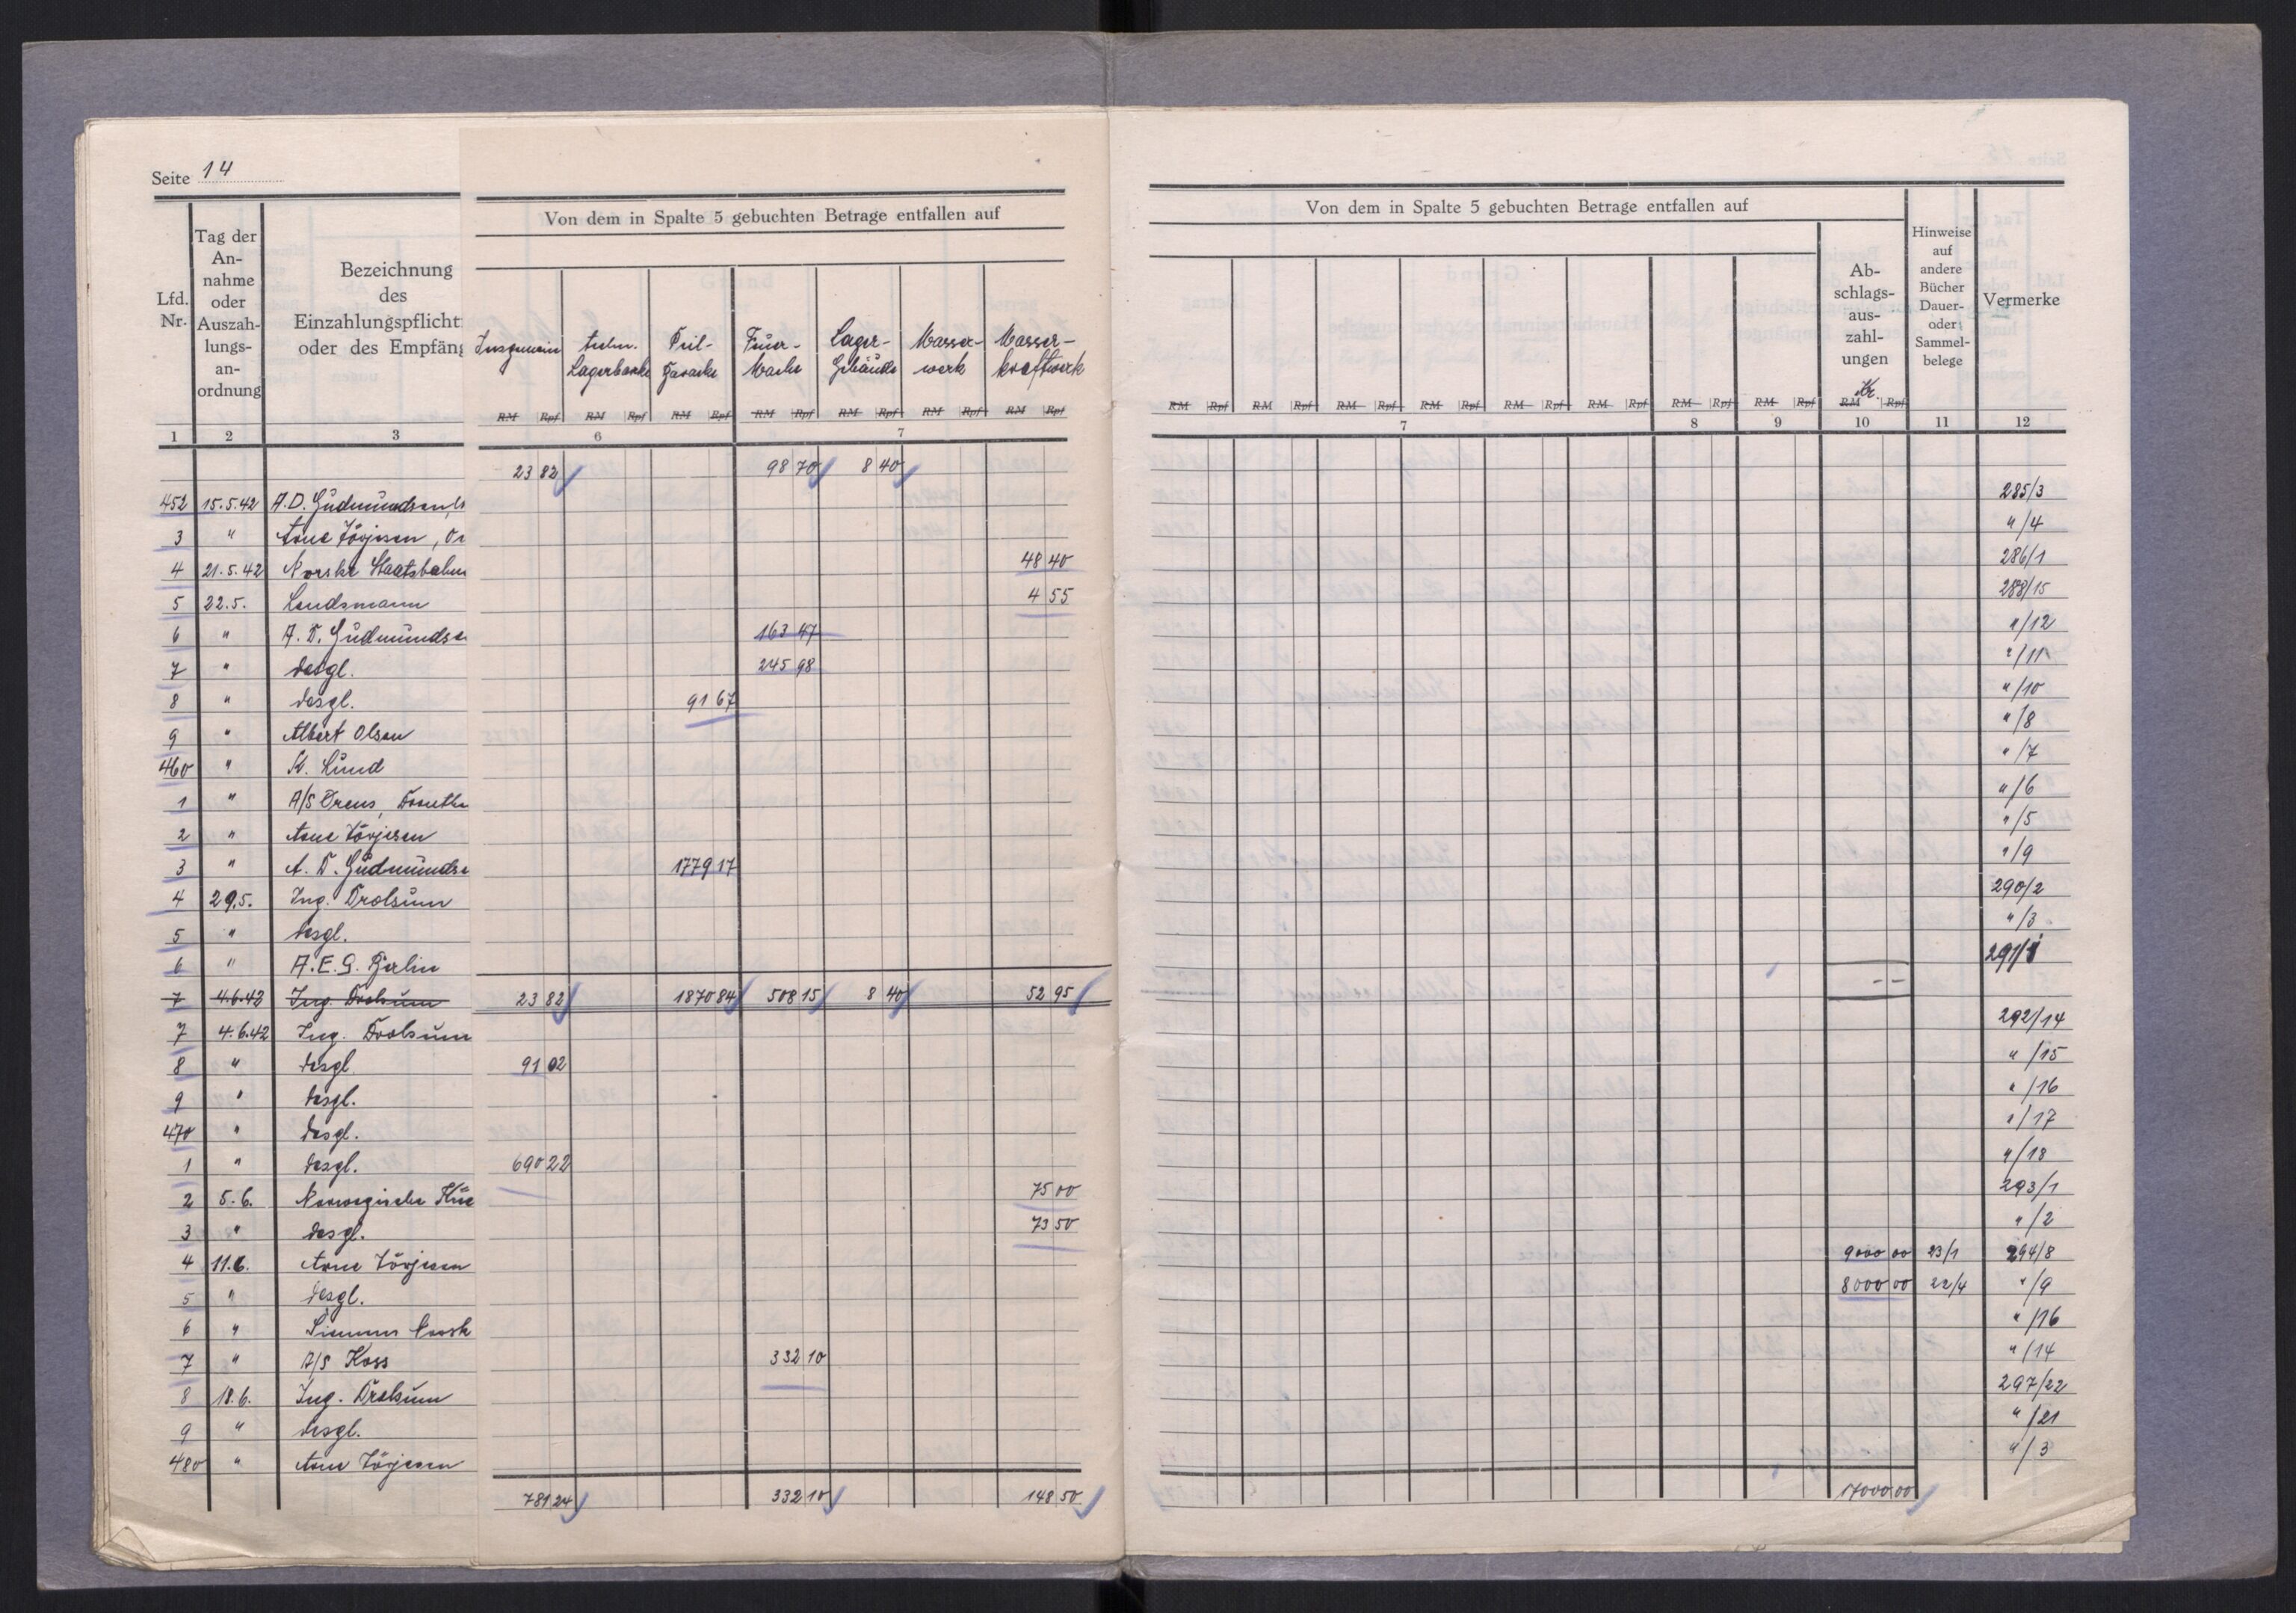 Seite 14
Von dem in Spalte 5 gebuchten Betrage entfallen auf
Von dem in Spalte 5 gebuchten Betrage entfallen auf
Lfd. Nr.
Tag der An- nahme oder Auszah- lungs- an- ordnung
Bezeichnung
des
Einzahlungspflicht
oder des Empfäng
Insgemein
techn. Lagerbaracke
Peil- Baracke
Feuer- Wache
Lager- Gebäude
Wasser- werk
Wasser- kraftwerk
RM Rpf RM Rpf RM Rpf RM Rpf RM Rpf RM Rpf RM Rpf
RM Rpf RM Rpf RM Rpf RM Rpf RM Rpf RM Rpf RM Rpf RM Rpf RM Rpf
Ab- schlags- aus- zahl- ungen
Kr.
Hinweise auf andere Bücher Dauer- oder Sammel- belege
Vermerke
1 2 3 6 7 7 8 9 10 11 12
23 82 98 70 8 40
452 15.5.42 A.D. Gudmundsen 285/3
3 " Arne Törjesen, " /4
4 21.5.42 Norske Staatsbahn 48 40 286/1
5 22.5. Lendsmann 4 55 288/15
6 " A. D. Gudmundse 163 47 " /12
7 " desgl. 245 98 " /11
8 " desgl. 91 67 " /10
9 " Albert Olsen " /8
460 " K. Lund " /7
1 " A/S Drens, Drontha " /6
2 " Arne Törjesen " /5
3 " A. D. Gudmundse 1779 17 " /9
4 29.5. Ing. Drolsum 290/2
5 " desgl. " /3
6 " A.E.G. Berlin 291/1
7 4.6.42 Ing. Drolsum 23 82 1870 84 508 15 8 40 52 95 --
7 4.6.42 Ing. Drolsum 292/14
8 " desgl 91 02 " /15
9 " desgl. " /16
470 " desgl. " /17
1 " desgl. 690 22 " /18
2 5.6. Norwegische 75 00 293/1
3 " desgl. 73 50 " /2
4 11.6. Arne Törjesen 9000 00 23/1 294/8
5 " desgl. 8000 00 22/4 " /9
6 " Siemens Norsk " /16
7 " A/S Koss 332 10 " /14
8 18.6. Ing. Drolsum 297/22
9 " desgl. " /21
480 " Arne Törjesen " /3
781 24 332 10 148 50 17000 00